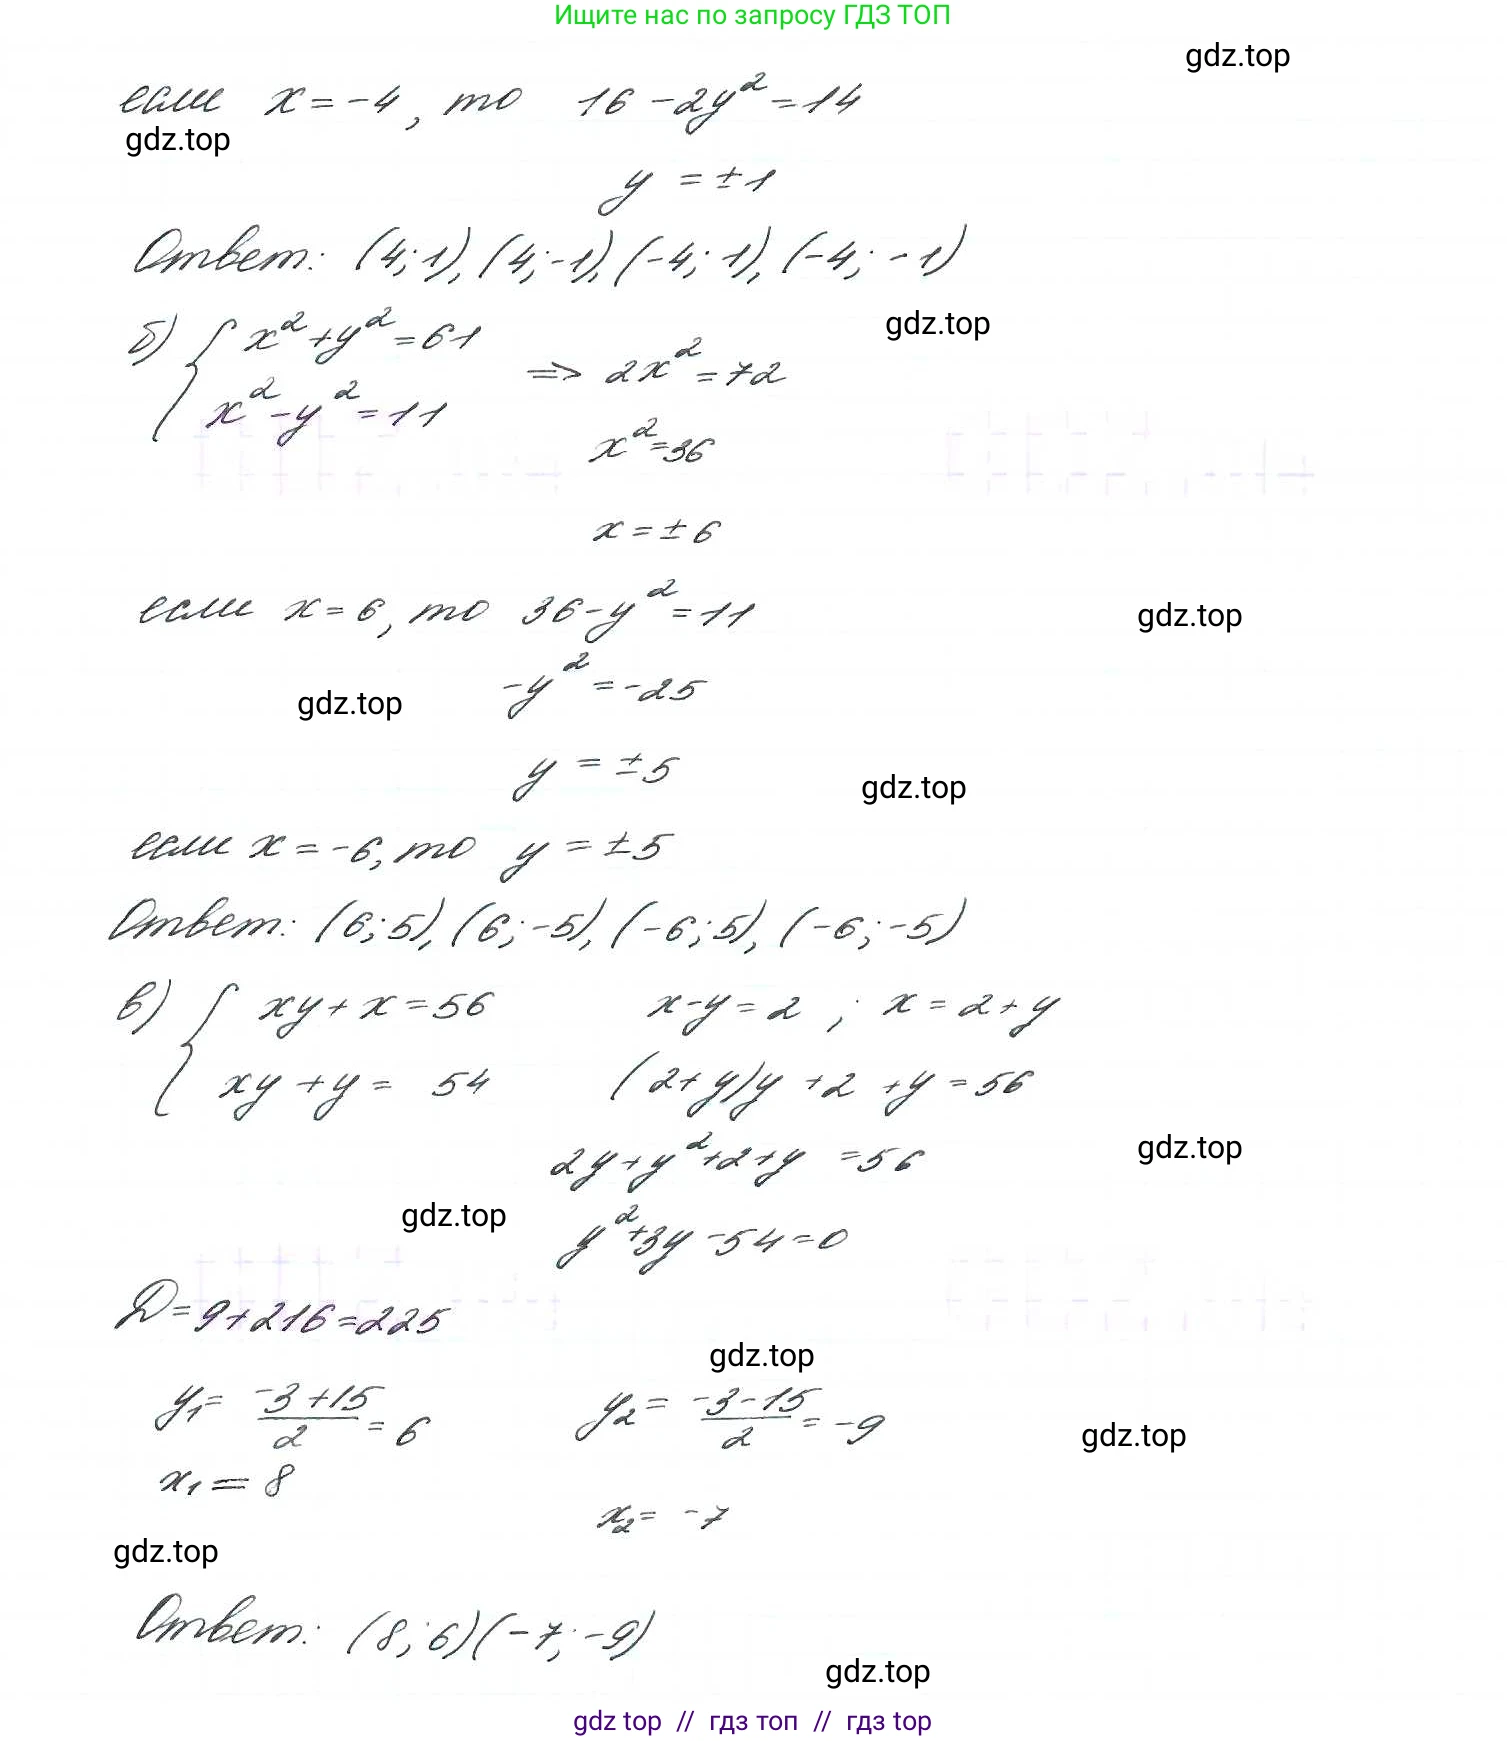 Ищите нас по запросу ГДЗ ТОП
gdz.top
если x = -4, то 16 - 2y² = 14
gdz.top
y = ±1
Ответ: (4; 1), (4; -1), (-4; 1), (-4; -1)
б) { x² + y² = 61
gdz.top
x² - y² = 11 => 2x² = 72
x² = 36
x = ±6
если x = 6, то 36 - y² = 11
gdz.top
-y² = -25
gdz.top
y = ±5
gdz.top
если x = -6, то y = ±5
Ответ: (6; 5), (6; -5), (-6; 5), (-6; -5)
в) { xy + x = 56 x - y = 2 ; x = 2 + y
xy + y = 54 (2 + y)y + 2 + y = 56
2y + y² + 2 + y = 56
gdz.top
gdz.top
y² + 3y - 54 = 0
D = 9 + 216 = 225
gdz.top
y₁ = (-3 + 15)/2 = 6 y₂ = (-3 - 15)/2 = -9
gdz.top
x₁ = 8
x₂ = -7
gdz.top
Ответ: (8; 6) (-7; -9)
gdz.top
gdz top // гдз топ // гдз top